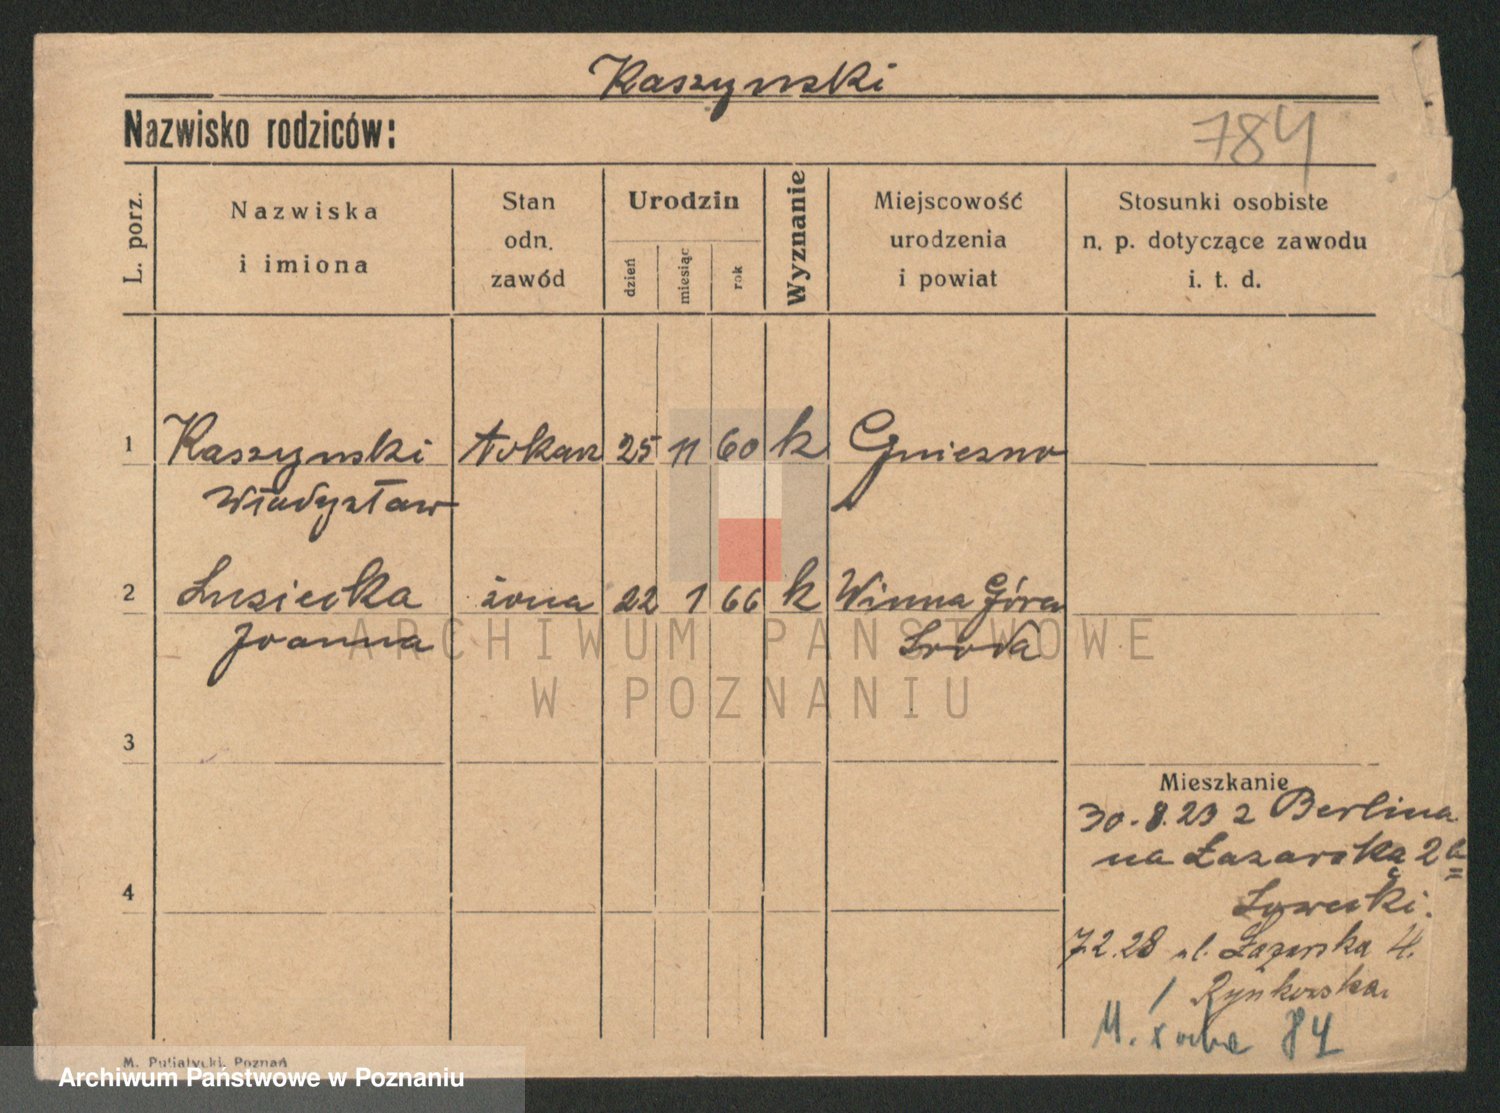 Kaszynski
Nazwisko rodziców:
784
L. porz.
Nazwiska
i imiona
Stan
odn.
zawód
Urodzin
dzień
miesiąc
rok
Wyznanie
Miejscowość
urodzenia
i powiat
Stosunki osobiste
n. p. dotyczące zawodu
i. t. d.
1 Kaszynski tokarz 25 11 60 k Gniezno
Władysław
2 Lusiecka żona 22 1 66 k Winna Góra
Joanna Sroda
ARCHIWUM PAŃSTWOWE
W POZNANIU
3
Mieszkanie
30.8.23 z Berlina
na Łazarską 2
4
7.2.28 ul. Łazarska 4.
Rynkowska
M. 84
M. Putiatycki, Poznań
Archiwum Państwowe w Poznaniu